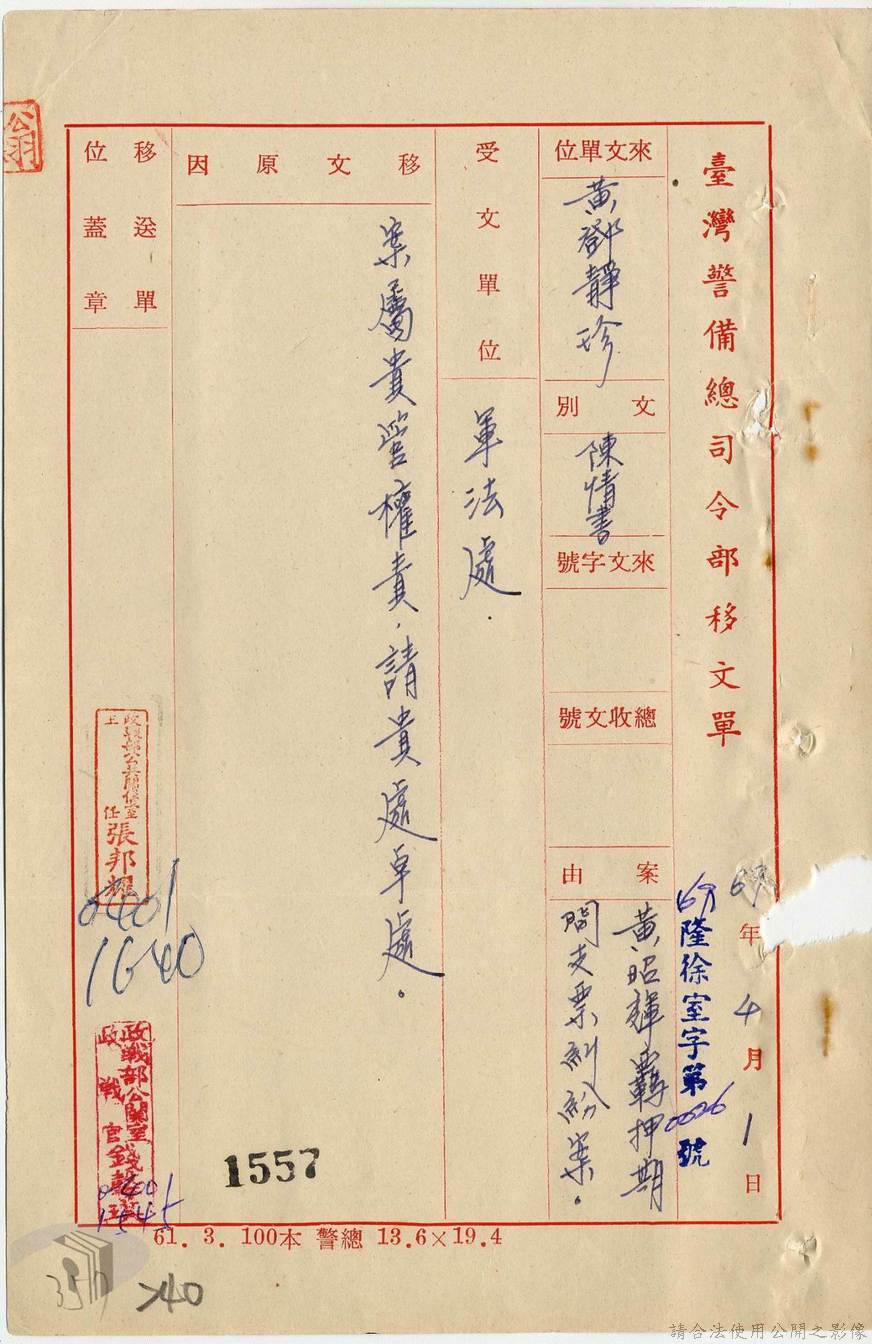 臺灣警備總司令部移文單
69年4月1日
69隆徐室字第0026號
來文單位
黃鄧靜珍
文別
陳情書
來文字號
總收文號
案由
黃昭輝羈押期
間支票糾紛案。
受文單位
軍法處.
移文原因
案屬貴管權責,請貴處卓處。
移送單
位蓋章
主任
張邦
0401
1640
政戰部公關室
政戰官錢
0401
1545
1557
61. 3. 100本 警總 13.6×19.4
翁
請合法使用公開之影像